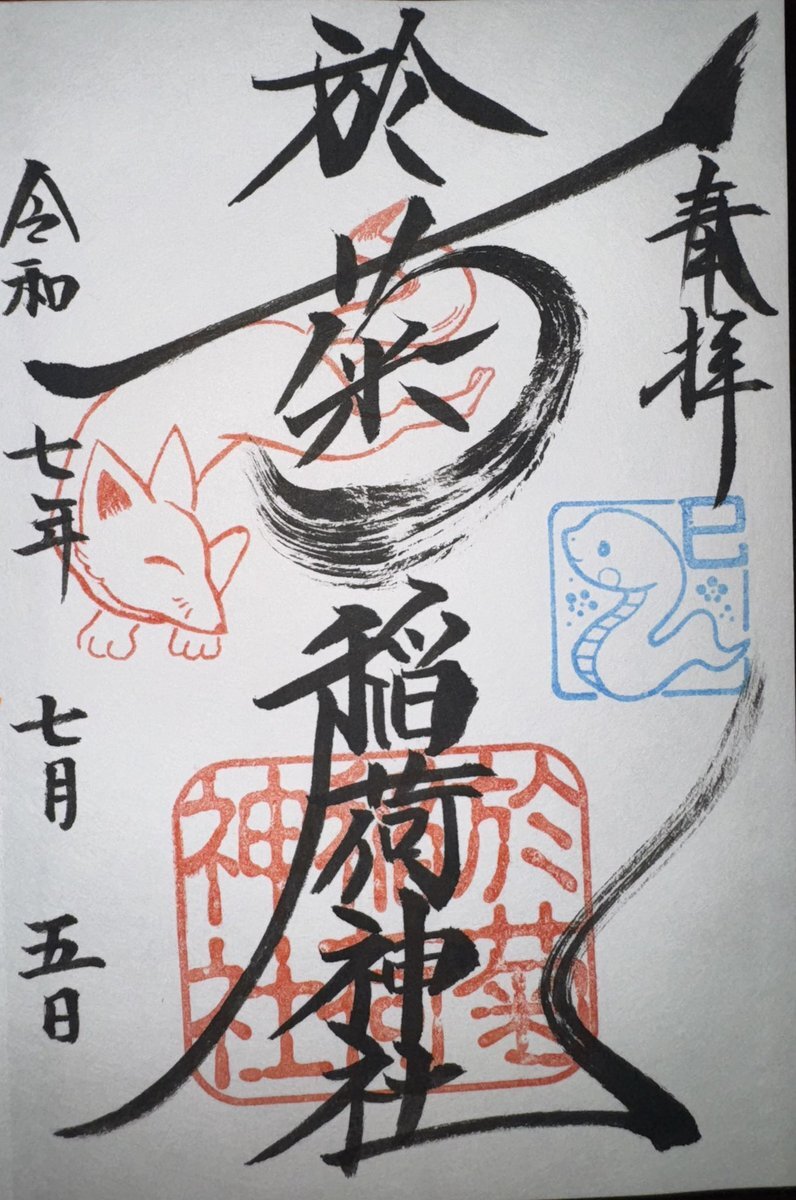 奉拝
巳
於菊稲荷神社
於菊
稲荷
神社
令和七年七月五日